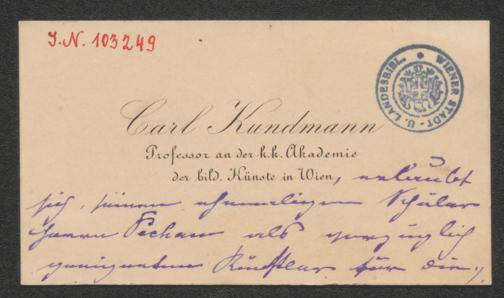 J.N. 103249
WIENER STADT- U. LANDESBIBL.
Carl Kundmann
Professor an der k.k. Akademie
der bild. Künste in Wien, erlaubt
sich, seinen ehemaligen Schüler
Herrn Pechan als vorzüglich
geeigneten Künstler für die